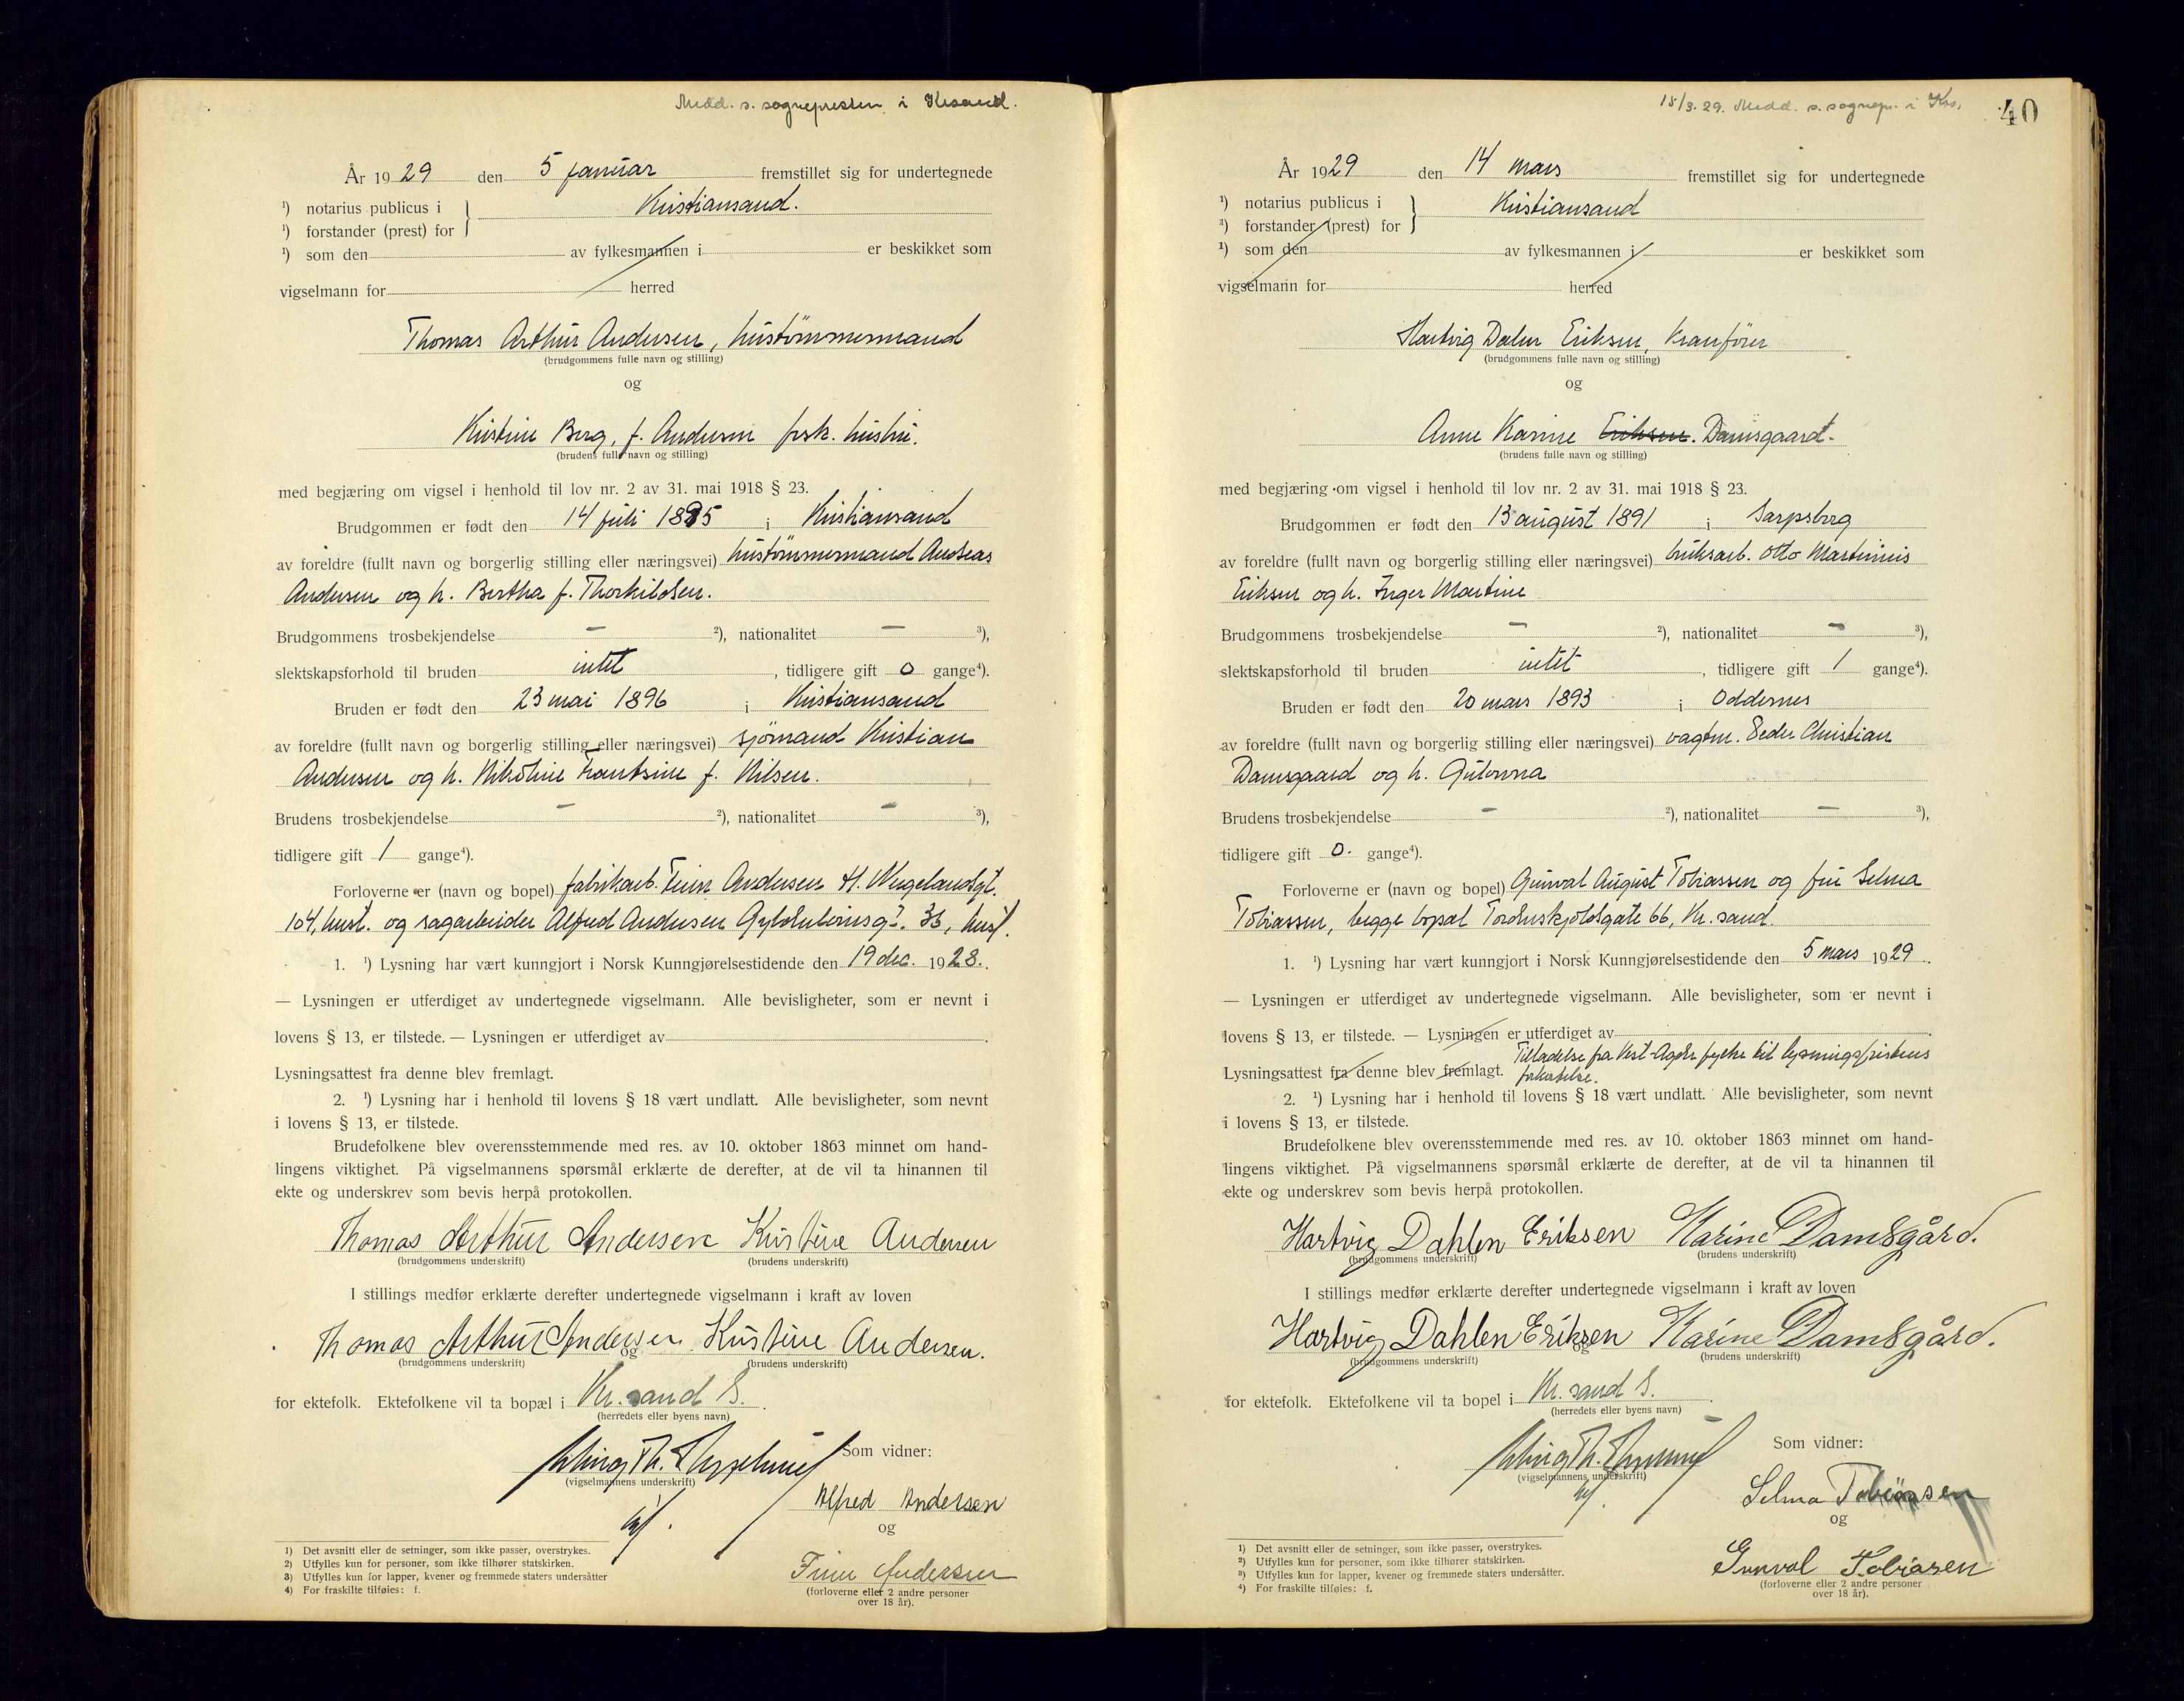 Medd. s. sogneprесten i Krsand.
År 1929 den 5 januar fremstillet sig for undertegnede
¹) notarius publicus i } Kristiansand.
¹) forstander (prest) for
¹) som den av fylkesmannen i er beskikket som
vigselmann for herred
Thomas Arthur Andersen, hustömmermand
(brudgommens fulle navn og stilling)
og
Kristine Berg, f. Andersen frsk. hustru.
(brudens fulle navn og stilling)
med begjæring om vigsel i henhold til lov nr. 2 av 31. mai 1918 § 23.
Brudgommen er født den 14 juli 1895 i Kristiansand
av foreldre (fullt navn og borgerlig stilling eller næringsvei) hustömmermand Andreas
Andersen og h. Bertha f. Thorkildsen.
Brudgommens trosbekjendelse — ²), nationalitet — ³),
slektskapsforhold til bruden intet, tidligere gift 0 gange⁴).
Bruden er født den 23 mai 1896 i Kristiansand
av foreldre (fullt navn og borgerlig stilling eller næringsvei) sjömand Kristian
Andersen og h. Nikoline Frantsine f. Nilsen.
Brudens trosbekjendelse — ²), nationalitet — ³),
tidligere gift 1 gange⁴).
Forloverne er (navn og bopel) fabrikarb. Finn Andersen H. Wergelandsgt.
104, hust. og sagarbeider Alfred Andersen Gyldenløvesgt. 36, hust.
1. ¹) Lysning har vært kunngjort i Norsk Kunngjørelsestidende den 19 dec. 1928.
— Lysningen er utferdiget av undertegnede vigselmann. Alle bevisligheter, som er nevnt i
lovens § 13, er tilstede. — Lysningen er utferdiget av
Lysningsattest fra denne blev fremlagt.
2. ¹) Lysning har i henhold til lovens § 18 vært undlatt. Alle bevisligheter, som nevnt
i lovens § 13, er tilstede.
Brudefolkene blev overensstemmende med res. av 10. oktober 1863 minnet om hand-
lingens viktighet. På vigselmannens spørsmål erklærte de derefter, at de vil ta hinannen til
ekte og underskrev som bevis herpå protokollen.
Thomas Arthur Andersen Kristine Andersen
(brudgommens underskrift) (brudens underskrift)
I stillings medfør erklærte derefter undertegnede vigselmann i kraft av loven
Thomas Arthur Andersen og Kristine Andersen.
(brudgommens underskrift) (brudens underskrift)
for ektefolk. Ektefolkene vil ta bopæl i Kr.sand S.
(herredets eller byens navn)
Som vidner:
(vigselmannens underskrift)
Alfred Andersen
og
Finn Andersen
(forloverne eller 2 andre personer
over 18 år).
1) Det avsnitt eller de setninger, som ikke passer, overstrykes.
2) Utfylles kun for personer, som ikke tilhører statskirken.
3) Utfylles kun for lapper, kvener og fremmede staters undersåtter
4) For fraskilte tilføies: f.
15/3.29. Medd. s. sognepr. i Krs. 40
År 1929 den 14 mars fremstillet sig for undertegnede
¹) notarius publicus i } Kristiansand
¹) forstander (prest) for
¹) som den av fylkesmannen i er beskikket som
vigselmann for herred
Hartvig Dalen Eriksen, kranförer
(brudgommens fulle navn og stilling)
og
Anne Karine Eriksen. Damsgaard.
(brudens fulle navn og stilling)
med begjæring om vigsel i henhold til lov nr. 2 av 31. mai 1918 § 23.
Brudgommen er født den 13 august 1891 i Sarpsborg
av foreldre (fullt navn og borgerlig stilling eller næringsvei) bruksarb. Otto Martinius
Eriksen og h. Inger Martine
Brudgommens trosbekjendelse — ²), nationalitet — ³),
slektskapsforhold til bruden intet, tidligere gift 1 gange⁴).
Bruden er født den 20 mars 1893 i Oddernes
av foreldre (fullt navn og borgerlig stilling eller næringsvei) vagtm. Peder Christian
Damsgaard og h. Gulowna
Brudens trosbekjendelse — ²), nationalitet — ³),
tidligere gift 0. gange⁴).
Forloverne er (navn og bopel) Gunval August Tobiassen og fru Selma
Tobiassen, begge bopæl Tordenskjoldsgate 66, Kr.sand.
1. ¹) Lysning har vært kunngjort i Norsk Kunngjørelsestidende den 5 mars 1929.
— Lysningen er utferdiget av undertegnede vigselmann. Alle bevisligheter, som er nevnt i
lovens § 13, er tilstede. — Lysningen er utferdiget av
Tilladelse fra Vest-Agder fylke til lysningsfristens
Lysningsattest fra denne blev fremlagt. forkortelse.
2. ¹) Lysning har i henhold til lovens § 18 vært undlatt. Alle bevisligheter, som nevnt
i lovens § 13, er tilstede.
Brudefolkene blev overensstemmende med res. av 10. oktober 1863 minnet om hand-
lingens viktighet. På vigselmannens spørsmål erklærte de derefter, at de vil ta hinannen til
ekte og underskrev som bevis herpå protokollen.
Hartvig Dahlen Eriksen Karine Damsgård.
(brudgommens underskrift) (brudens underskrift)
I stillings medfør erklærte derefter undertegnede vigselmann i kraft av loven
Hartvig Dahlen Eriksen og Karine Damsgård.
(brudgommens underskrift) (brudens underskrift)
for ektefolk. Ektefolkene vil ta bopel i Kr.sand S.
(herredets eller byens navn)
Som vidner:
(vigselmannens underskrift)
Selma Tobiassen
og
Gunval Tobiasen
(forloverne eller 2 andre personer
over 18 år).
1) Det avsnitt eller de setninger, som ikke passer, overstrykes.
2) Utfylles kun for personer, som ikke tilhører statskirken.
3) Utfylles kun for lapper, kvener og fremmede staters undersåtter.
4) For fraskilte tilføies: f.